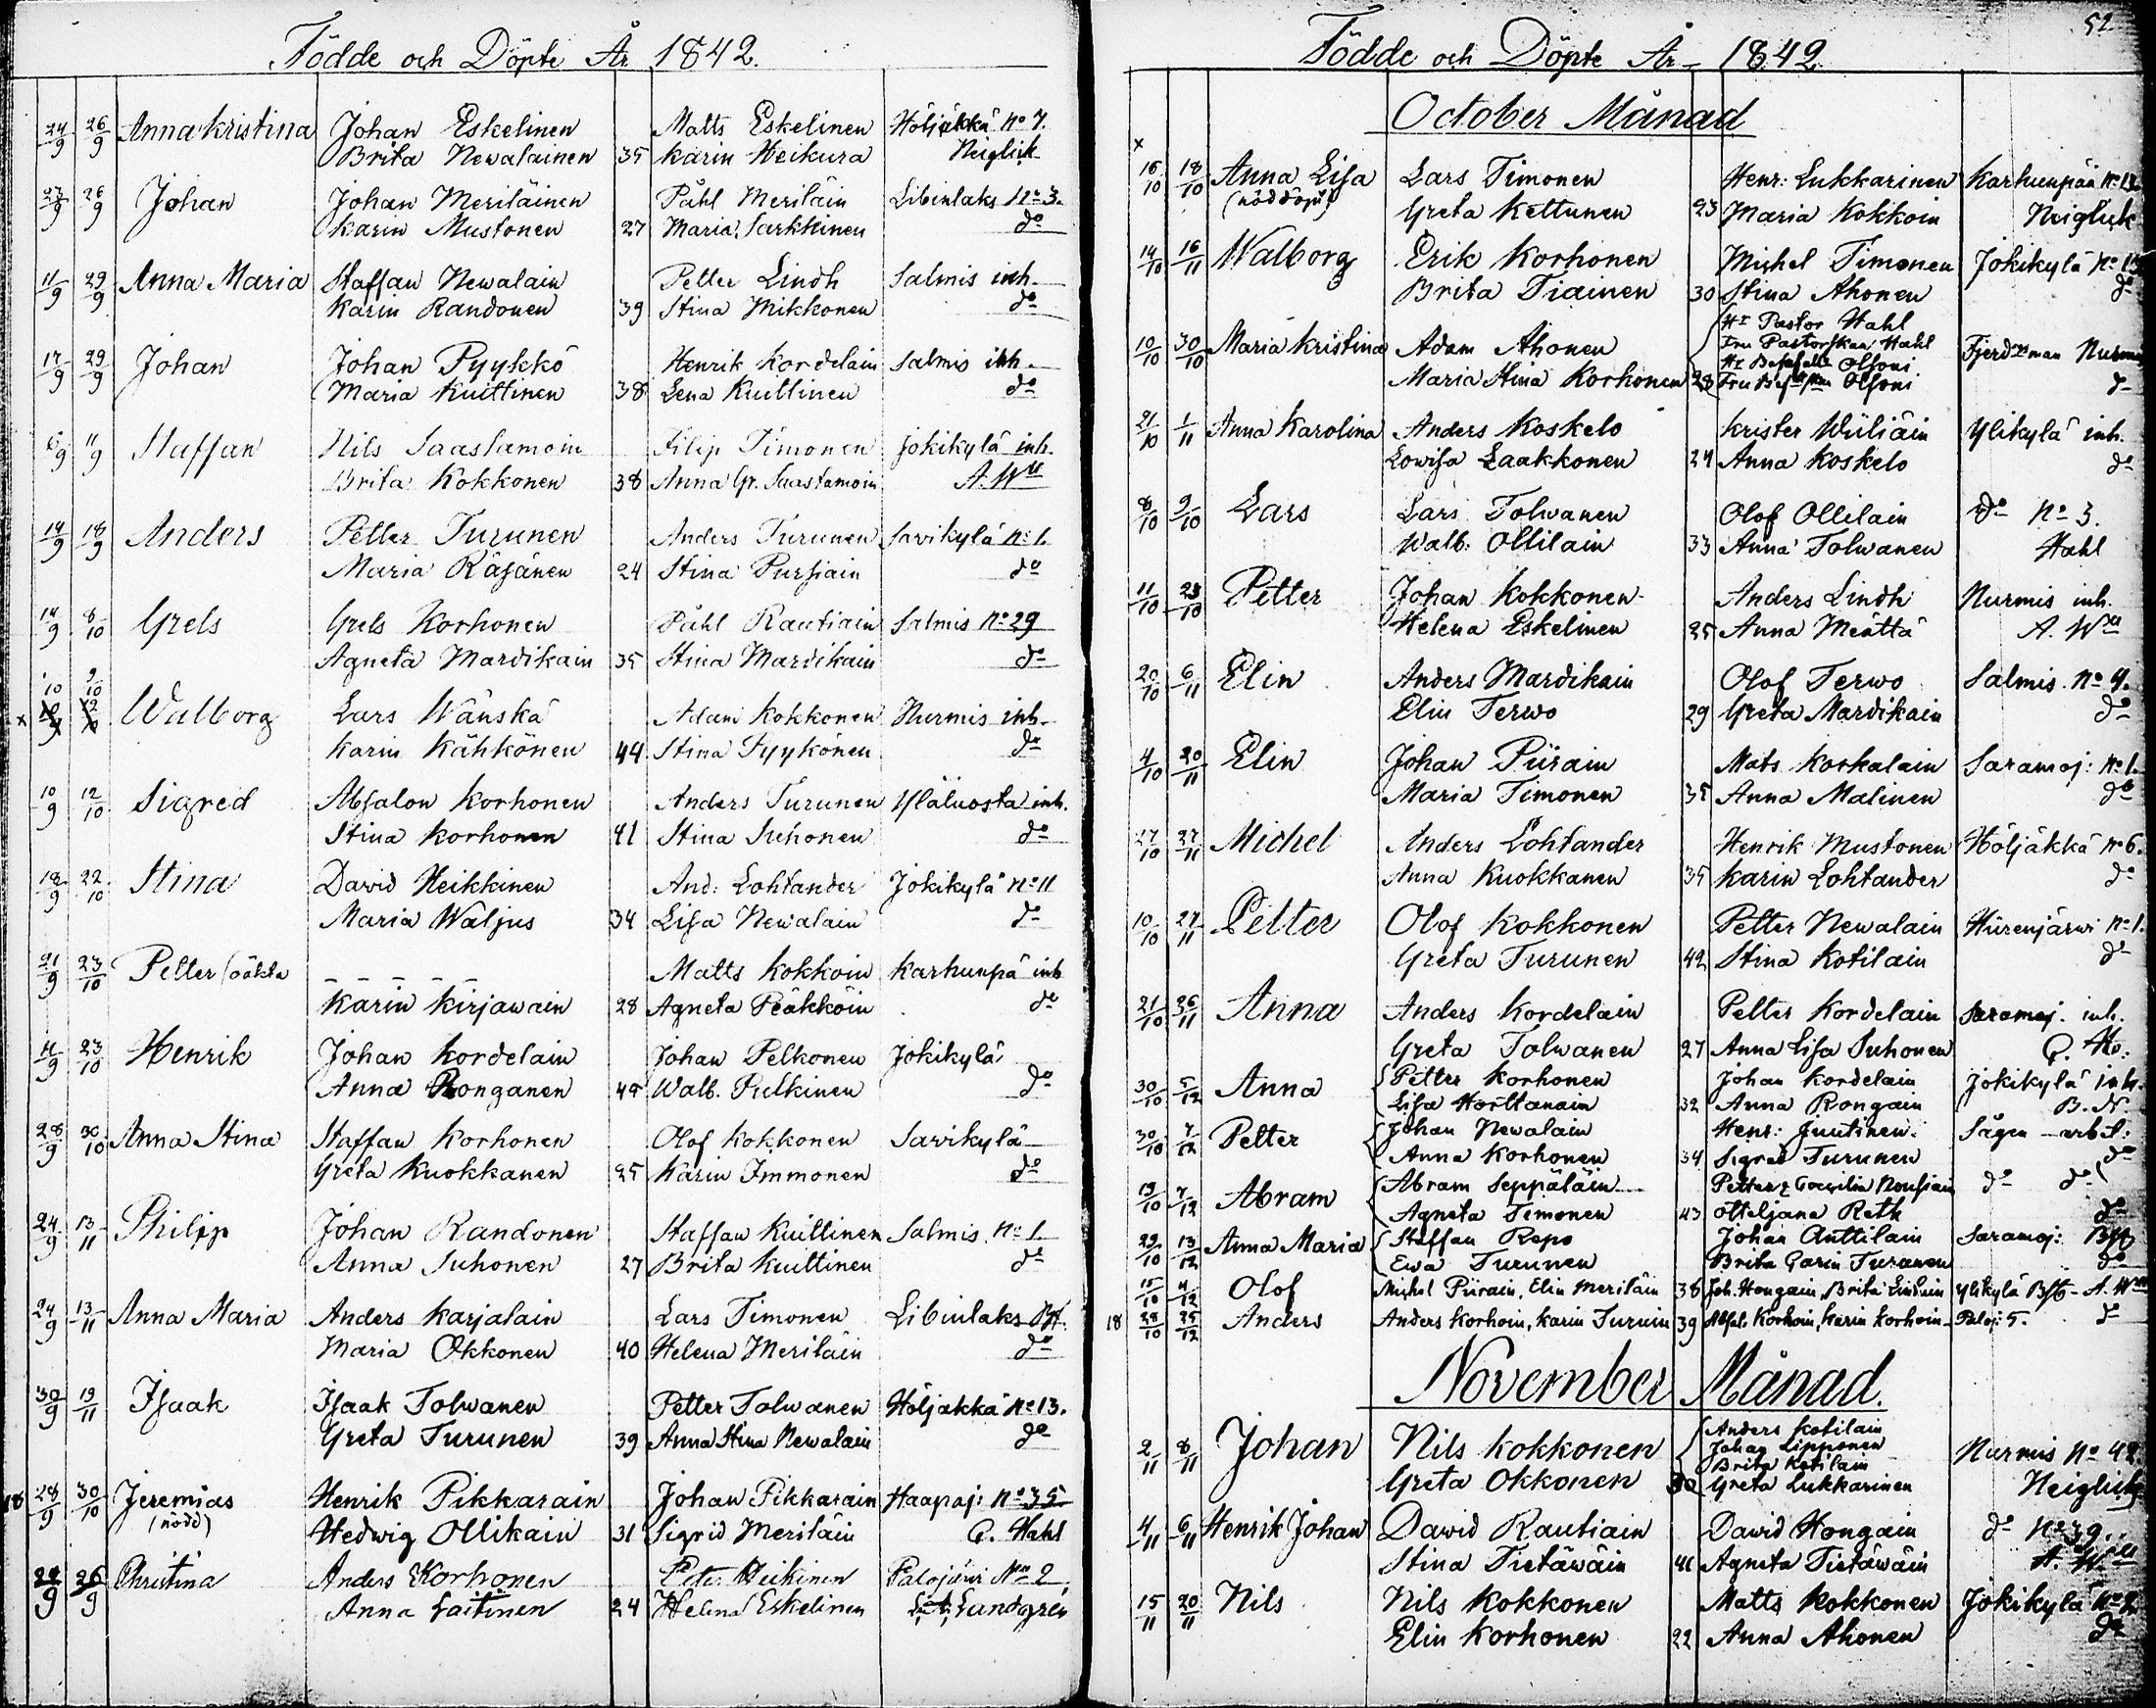 Födde och Döpte År 1842.
24/9 26/9 Anna Kristina Johan Eskelinen Matts Eskelinen Höljäkkä No 7.
Brita Newalainen 35 Karin Heikura Neiglick
23/9 26/9 Johan Johan Meriläinen Påhl Meriläin Libinlaks No 3.
Karin Mustonen 27 Maria Sarkkinen do
11/9 29/9 Anna Maria Staffan Newalain Petter Lindh Salmis inh.
Karin Randonen 39 Stina Mikkonen do
17/9 29/9 Johan Johan Pyykkö Henrik Kordelain Salmis inh.
Maria Kuittinen 38 Lena Kuittinen do
6/9 11/9 Staffan Nils Saastamoin Filip Timonen Jokikylä inh.
Brita Kokkonen 38 Anna Gr. Saastamoin A. Wll
14/9 18/9 Anders Petter Turunen Anders Turunen Savikylä No 1.
Maria Räsänen 24 Stina Pursiain do
14/9 8/10 Grels Grels Korhonen Påhl Rautiain Salmis No 29
Agneta Mardikain 35 Stina Mardikain do
x 1/10 9/10 Walborg Lars Wänskä Adam Kokkonen Nurmis inh.
Karin Kähkönen 44 Stina Pyykönen do
10/9 12/10 Sigred Absalon Korhonen Anders Turunen Yläluosta inh.
Stina Korhonen 41 Stina Suhonen do
18/9 22/10 Stina David Heikkinen And: Lohtander Jokikylä No 11
Maria Waljus 34 Lisa Newalain do
21/9 23/10 Petter (oäkta — — — — Matts Kokkoin Karhunpä inh
Karin Kirjawain 28 Agneta Pääkköin do
11/9 23/10 Henrik Johan Kordelain Johan Pelkonen Jokikylä
Anna Ronganen 45 Walb. Pulkinen do
28/9 30/10 Anna Stina Staffan Korhonen Olof Kokkonen Savikylä
Greta Kuokkanen 25 Karin Immonen do
24/9 13/11 Philip Johan Randonen Staffan Kuittinen Salmis. No 1.
Anna Suhonen 27 Brita Kuittinen do
24/9 13/11 Anna Maria Anders Karjalain Lars Timonen Libinlaks Bst.
Maria Okkonen 40 Helena Meriläin do
30/9 19/11 Isaak Isaak Tolwanen Petter Tolwanen Höljäkkä No 13.
Greta Turunen 39 Anna Stina Newalain do
18 28/9 30/10 Jeremias Henrik Pikkarain Johan Pikkarain Haapaj: No 35
(nödd) Hedwig Ollikain 31 Sigrid Meriläin P. Hahl
22/9 26/9 Christina Anders Korhonen Peter Heikinen Palojärwi No 2,
Anna Laitinen 24 Helena Eskelinen Landgren
52
Födde och Döpte År 1842
October Månad
x
16/10 18/10 Anna Lisa Lars Timonen Henr: Lukkarinen Karhunpää No 13.
(nöddöpt) Greta Kettunen 23 Maria Kokkoin Neiglick
14/10 16/11 Walborg Erik Korhonen Michel Timonen Jokikylä No
Brita Tiainen 30 Stina Ahonen do
Hr Pastor Hahl
10/10 30/10 Maria Kristina Adam Ahonen Fru Pastorskan Hahl Fjerd:man Nurmis
Hr Olsoni
Maria Stina Korhonen 28 Fru Olsoni do
21/10 1/11 Anna Karolina Anders Koskelo Krister Wiiliäin Ylikylä inh.
Lowisa Laakkonen 24 Anna Koskelo do
8/10 9/10 Lars Lars Tolwanen Olof Ollilain do No 3.
Walb: Ollilain 33 Anna Tolwanen Hahl
11/10 23/10 Petter Johan Kokkonen Anders Lindh Nurmis inh.
Helena Eskelinen 25 Anna Määttä A. Wll
20/10 6/11 Elin Anders Mardikain Olof Terwo Salmis. No 9.
Elin Terwo 29 Greta Mardikain do
4/10 20/11 Elin Johan Piirain Mats Korkalain Saramoj: No 1.
Maria Timonen 35 Anna Malinen do
27/10 27/11 Michel Anders Lohtander Henrik Mustonen Höljäkkä No 6.
Anna Kuokkanen 35 Karin Lohtander do
10/10 27/11 Petter Olof Kokkonen Petter Newalain Hiirenjärwi No 1.
Greta Turunen 42 Stina Kotilain do
21/10 26/11 Anna Anders Kordelain Petter Kordelain Saramoj. inh.
Greta Tolwanen 27 Anna Lisa Suhonen P. Ho:
30/10 5/12 Anna Petter Korhonen Johan Kordelain Jokikylä inh.
Lisa Horttanain 32 Anna Rongain B. N.
30/10 7/12 Petter Johan Newalain Henr: Juutinen. Sågen arbet:
Anna Korhonen 34 Sigred Turunen do
13/10 7/12 Abram Abram Seppäläin Petter & Nousiain do do
Agneta Timonen 43 Otteljana Reth do
29/10 13/12 Anna Maria Staffan Repo Johan Anttilain Saramoj: Bst
Ewa Turunen Brita Carin Turunen do
15/10 4/12 Olof Michel Piirain, Elin Meriläin 38 Joh. Hongain, Brita Ylikylä Bst - A. Wll
18 28/10 25/12 Anders Anders Korhoin, Karin Turuin 39 Absal. Korhoin, Karin Korhoin Paloj: 5. do
November Månad.
Anders Kotilain
2/11 8/11 Johan Nils Kokkonen Johan Lipponen Nurmis No 42
Brita Kotilain
Greta Okkonen 30 Greta Lukkarinen Neiglick
4/11 6/11 Henrik Johan David Rautiain David Hongain do No 39.
Stina Tietäwäin 41 Agneta Tietäwäin A. Wll
15/11 20/11 Nils Nils Kokkonen Matts Kokkonen Jokikylä No
Elin Korhonen 22 Anna Ahonen do